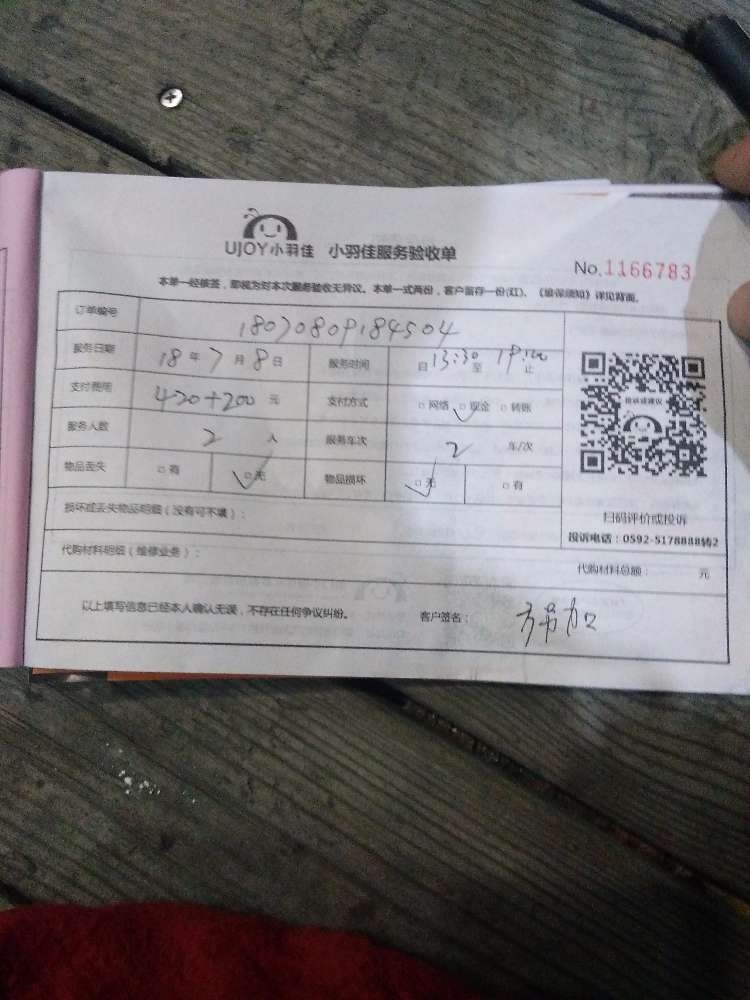 UJOY小羽佳 小羽佳服务验收单
No.1166783
本单一经核签,即视为对本次服务验收无异议。本单一式两份,客户留存一份(红)、《维保须知》详见背面。
订单编号 18070809184504
服务日期 18年7月8日 服务时间 自13:30至 19:00止
支付费用 420+200元 支付方式 □网络 □现金 □转账
服务人数 2人 服务车次 2 车/次
物品丢失 □有 □无 物品损坏 □无 □有
投诉或建议
扫码评价或投诉
投诉电话:0592-5178888转2
损坏或丢失物品明细(没有可不填):
代购材料明细(维修业务):
代购材料总额: 元
以上填写信息已经本人确认无误,不存在任何争议纠纷。 客户签名: